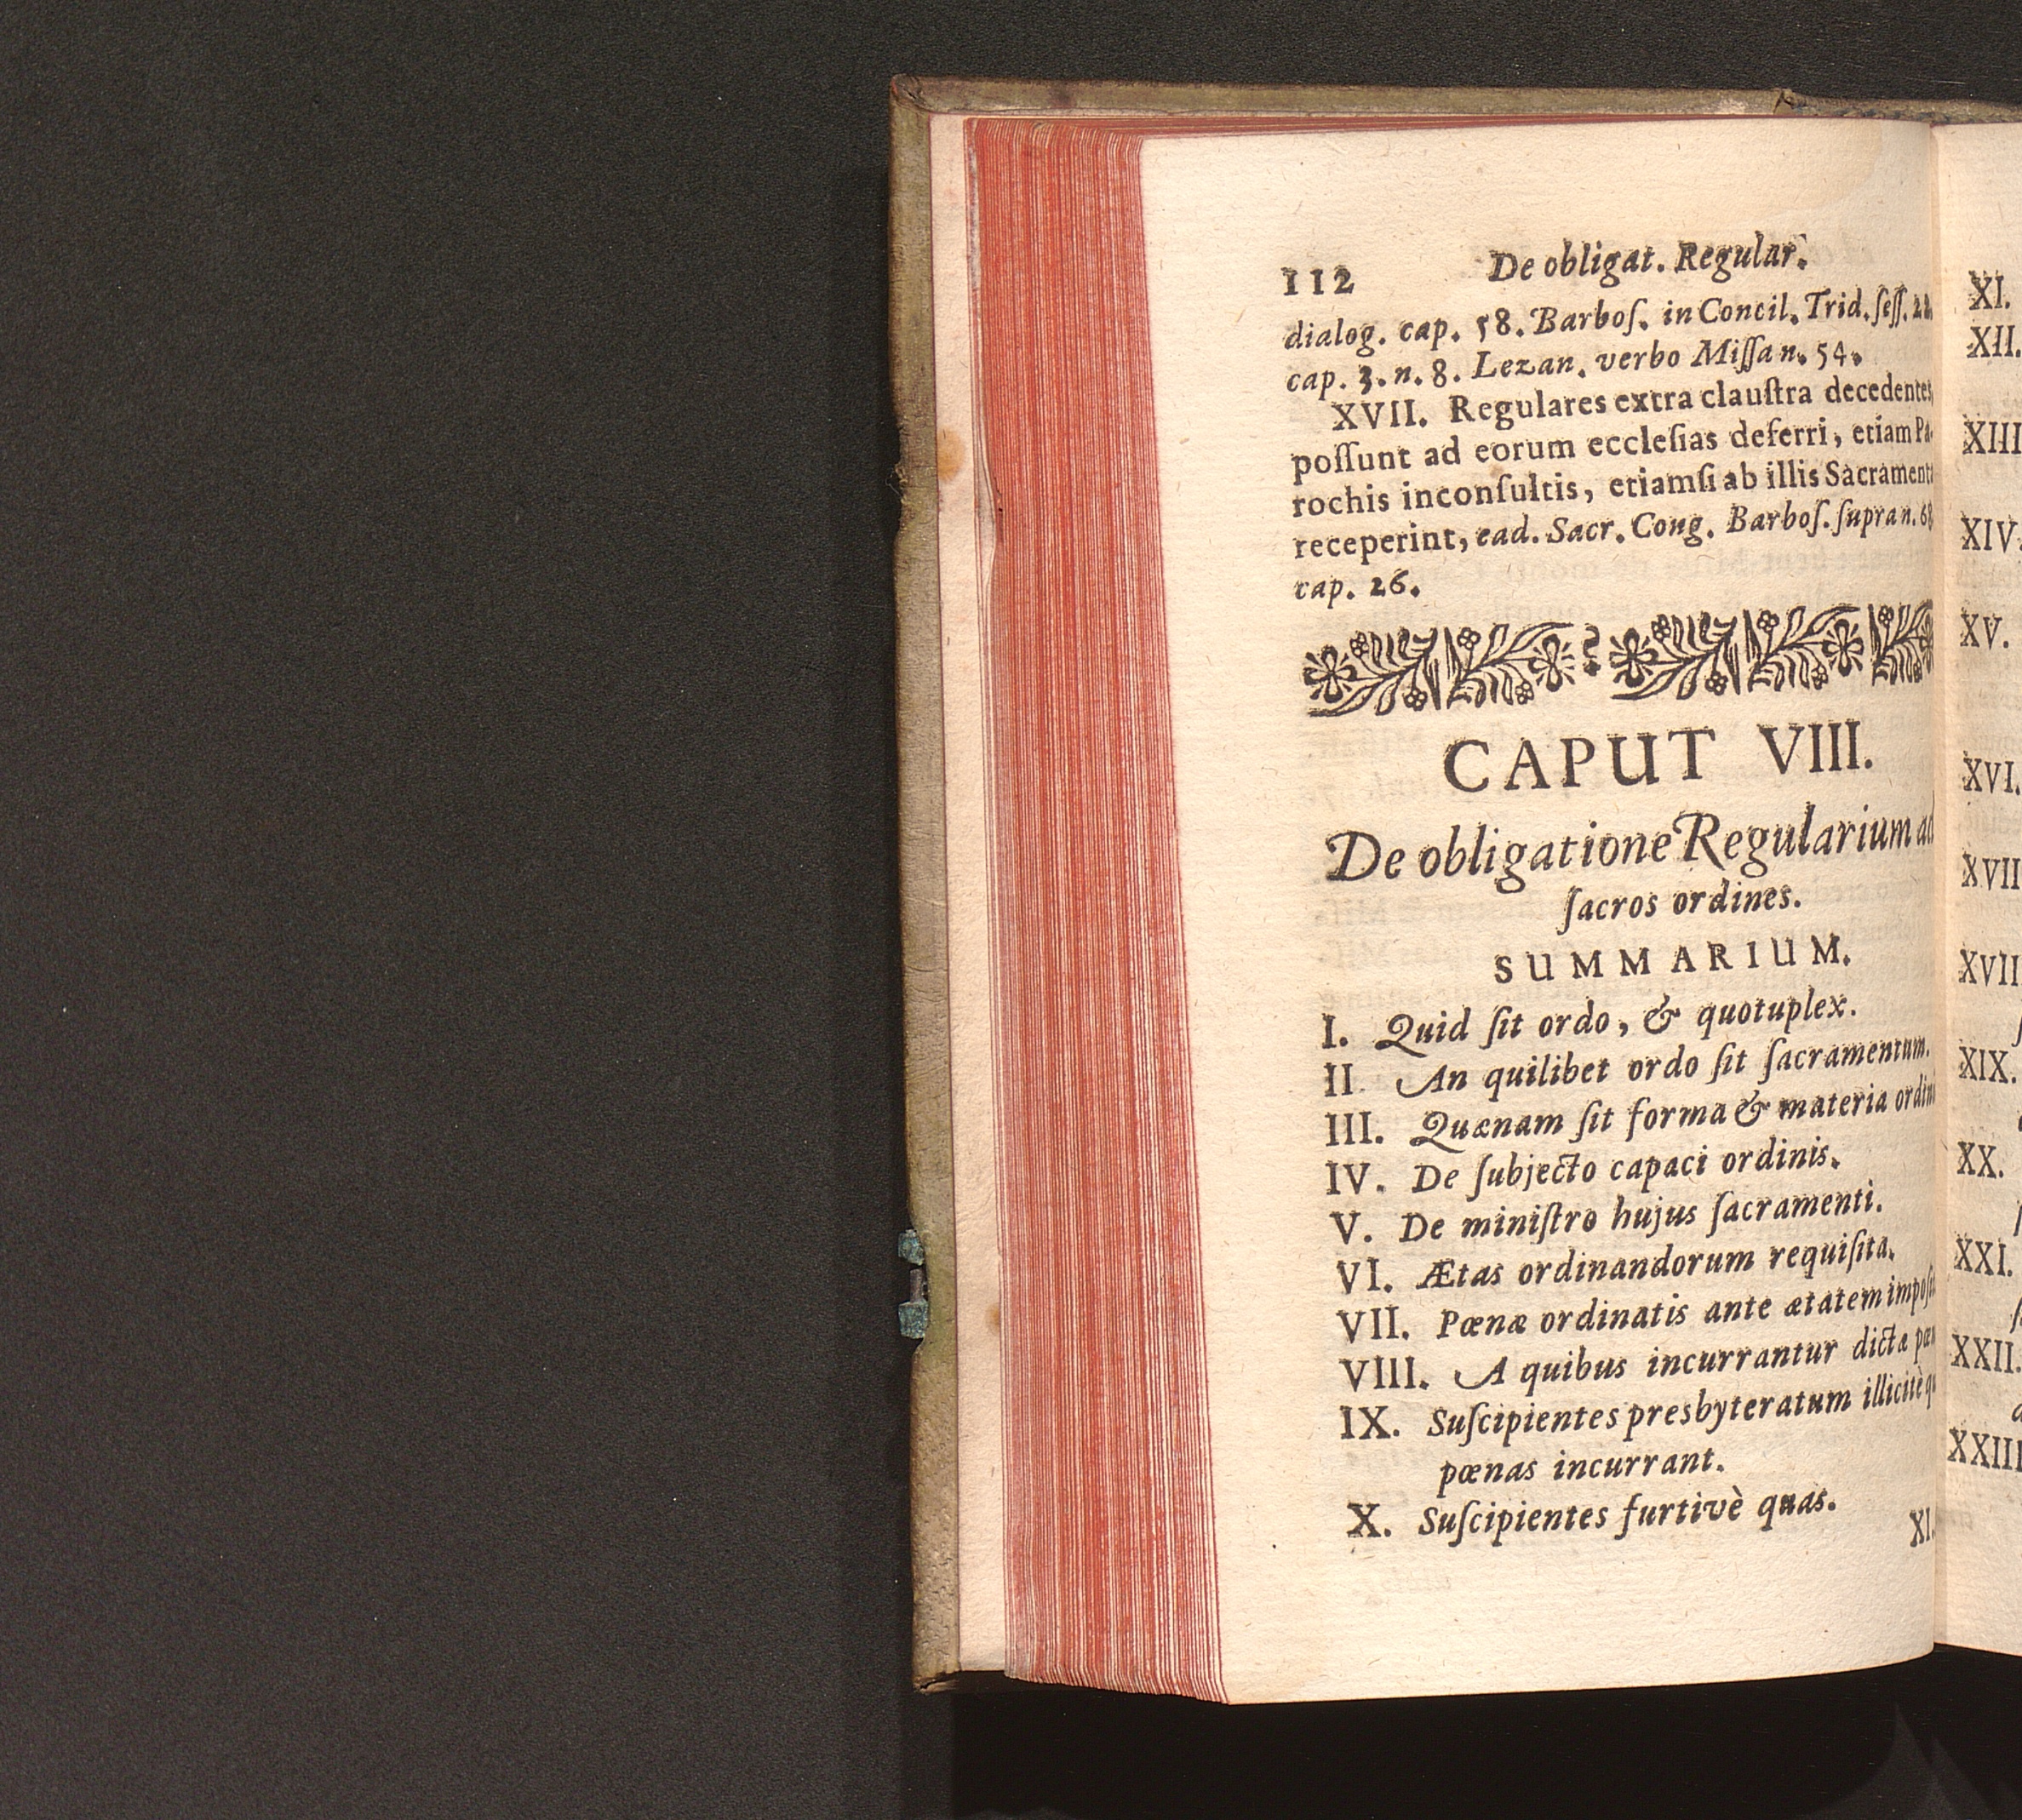 112 De obligat. Regular.
dialog. cap. 58. Barboſ. in Concil. Trid. ſeſſ. 22.
cap. 3. n. 8. Lezan. verbo Miſſa n. 54.
XVII. Regulares extra clauſtra decedentes,
poſſunt ad eorum eccleſias deferri, etiam Pa-
rochis inconſultis, etiamſi ab illis Sacramenta
receperint, ead. Sacr. Cong. Barboſ. ſupra n. 68
cap. 26.
CAPUT VIII.
De obligatione Regularium ad
ſacros ordines.
SUMMARIUM.
I. Quid ſit ordo, & quotuplex.
II. An quilibet ordo ſit ſacramentum.
III. Quænam ſit forma & materia
IV. De ſubjecto capaci ordinis.
V. De miniſtro hujus ſacramenti.
VI. Ætas ordinandorum requiſita.
VII. Pœnæ ordinatis ante ætatem
VIII. A quibus incurrantur dictæ
IX. Suſcipientes presbyteratum illicitè
pœnas incurrant.
X. Suſcipientes furtivè quas.
XI.
XI.
XII.
XIII
XIV.
XV.
XVI.
XVII
XVII
XIX.
XX.
XXI.
XXII.
XXIII